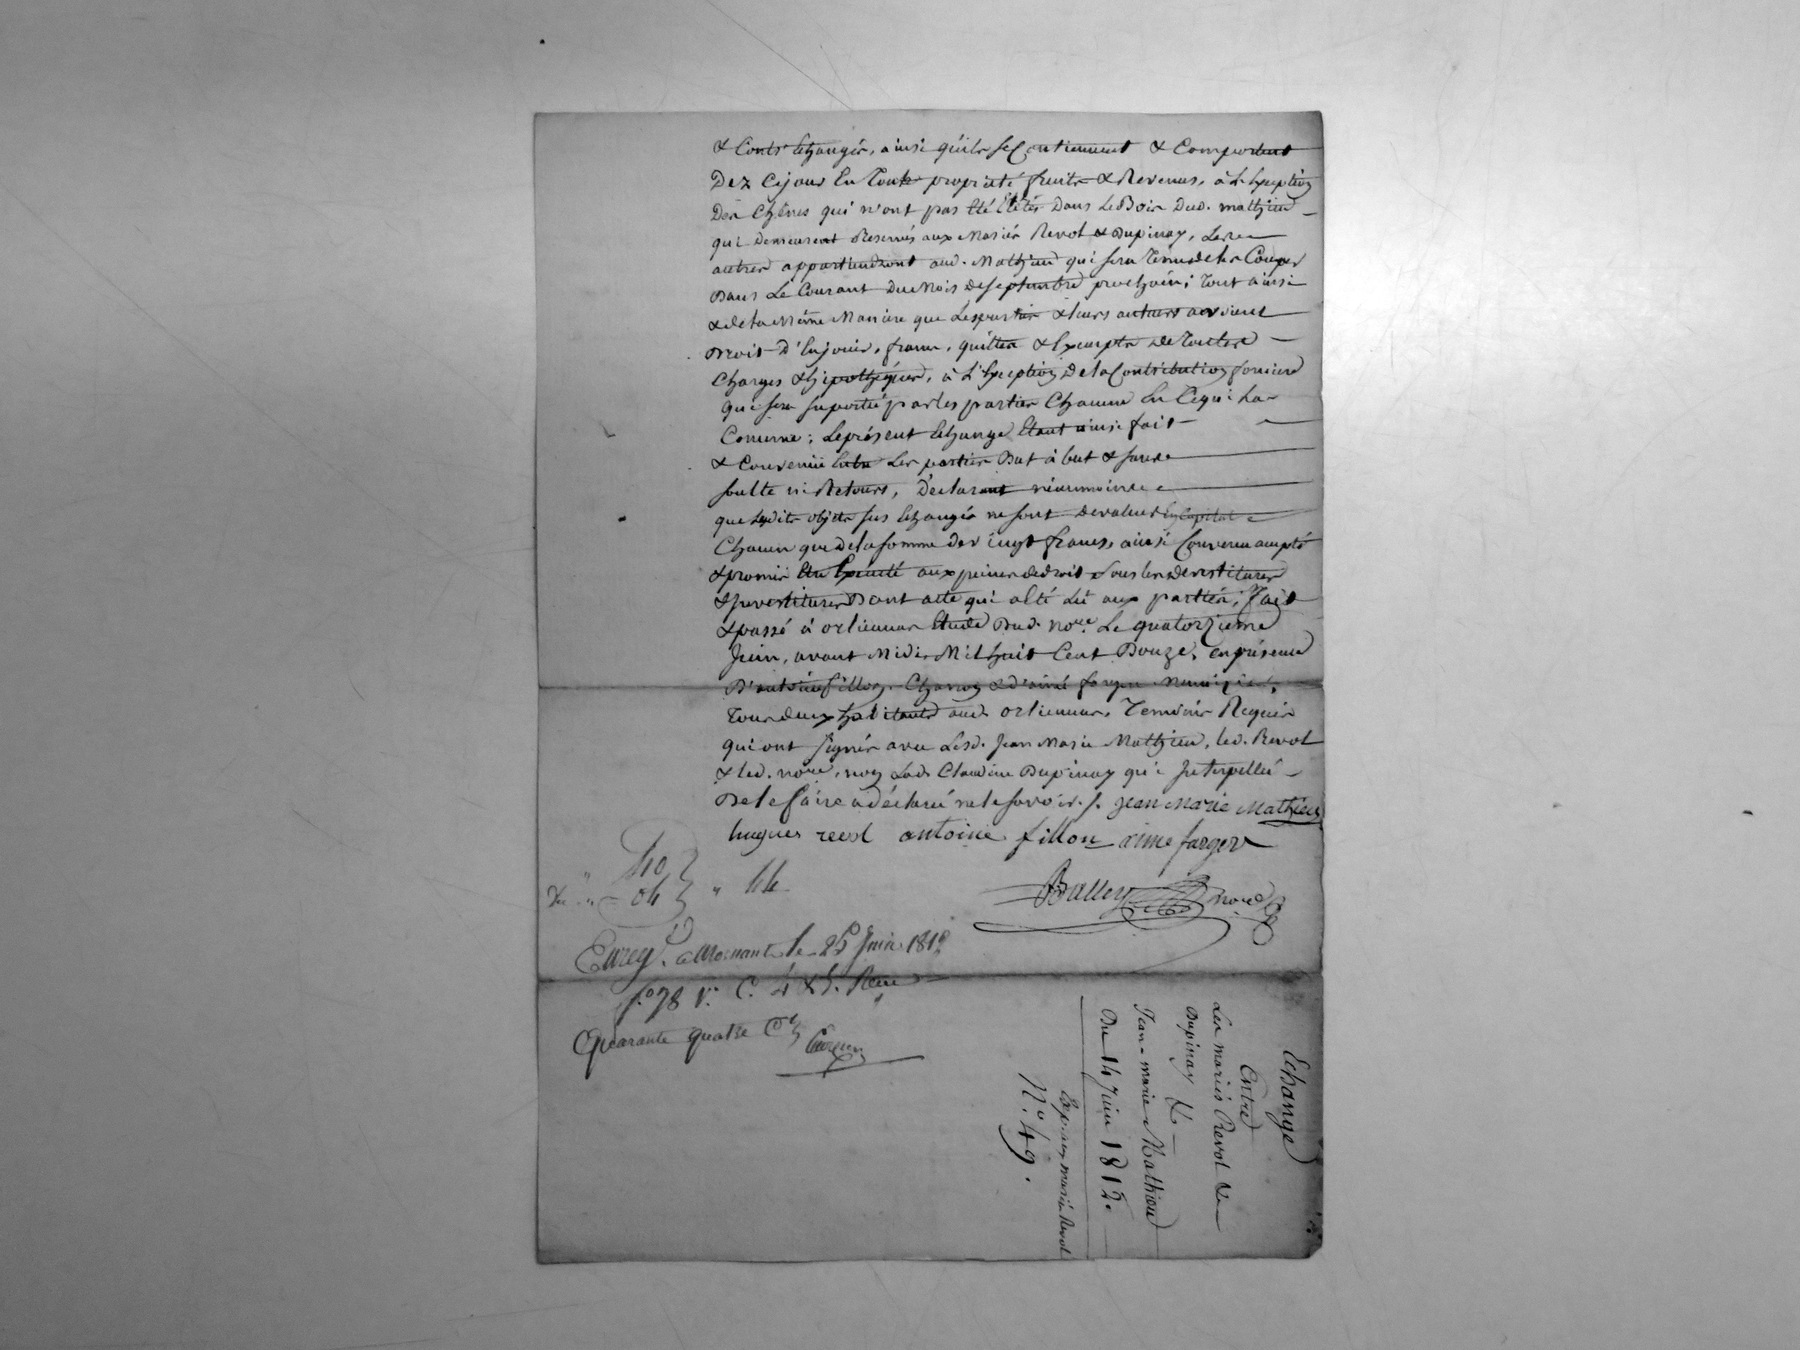 & Contr'Echangés, ainsi quils se Contiennent & Comportent
Dez Cejour En Toute propriété fruits & Revenus, à L'Exeption
Des Chênes qui n'ont pas Eté Etêtés Dans Le Bois Dud. mathieu
qui Demeurent Reservés aux Mariés Revol & Dupinay, Les
autres appartiendront aud. Mathieu qui sera Tenu de les Couper
Dans Le Courant Du Mois de septembre prochain; Tout ainsi
& de la Même Maniere que Les parties & leurs auteurs avoient
Droit D'En jouir, francs, quittes & Exempts de Toutes
Charges & hipothéques, à L'Exeption De la Contribution fonciere
qui sera suportée par les parties Chacune En Cequi La
Concerne; Le présent Echange Etant ainsi fait
& Convenu Entre Les parties But à but & sans
soulte ni Retours, Déclarant néanmoins
que Lesdits objets sus Echangés ne sont De valeur En Capital
Chacun que de la somme de vingt francs, ainsi Convenu accepté
& promis Etre Exécuté aux peines de droit sous les devestitures
& Investitures Dont acte qui a Eté Lû aux parties; Fait
& passé à orlienas Etude Dud. nore. Le quatorzieme
Juin, avant Midi, Mil huit Cent Douze, en présence
D'antoine fillon, Charron & d'aimé farger
Tous deux habitants aud. orlienas, Temoins Requis
qui ont signés avec Lesd. Jean Marie Mathieu, led. Revol
& led. nore, non Lad. Claudine Dupinay qui Interpellée
De le faire a déclaré ne le savoir./. Jean Marie Mathieu
hugues revol antoine fillon aime farger
40
04 " 44
Balley nore
Enreg. a Mornant le 25 Juin 1812
fo. 78 v. C. 4 & 5. Reçu
Quarante quatre Ces
Echange
Entre
Les mariés Revol &
Dupinay &
Jean-marie Mathieu
Du 14 Juin 1812.
Exp. aux mariés Revol
No. 49.